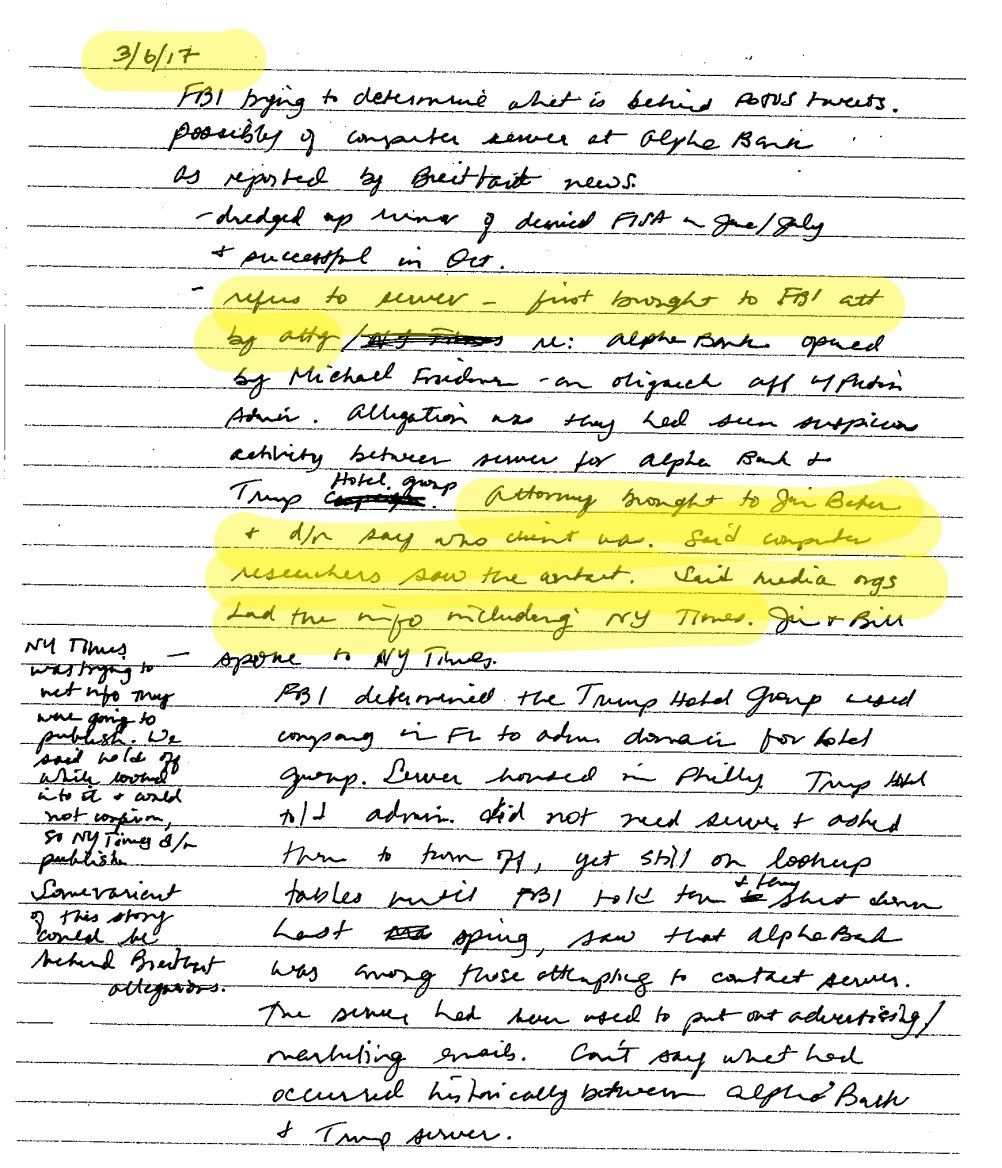 3/6/17
FBI trying to determine what is behind POTUS tweets.
possibly of computer server at Alpha Bank
as reported by Breitbart news.
- dredged up rumor of denied FISA in June/July
+ successful in Oct.
- refers to server - first brought to FBI att
by atty / NY Times re: Alpha Bank owned
by Michael Friedman - an oligarch aff w/ Putin
Admin. Allegation was they had seen suspicious
activity between server for Alpha Bank +
Trump Hotel group. Attorney brought to Jim Baker
+ d/n say who client was. Said computer
researchers saw the contact. Said media orgs
had the info including NY Times. Jim + Bill
spoke to NY Times.
NY Times
was trying to
vet info they
were going to
publish. We
said hold off
while looked
into it + could
not confirm,
so NY Times d/n
publish
Some variant
of this story
could be
behind Breitbart
allegations.
FBI determined the Trump Hotel Group used
company in FL to adm. domain for hotel
group. Server housed in Philly. Trump Hotel
told admin. did not need server + asked
them to turn off, yet still on lookup
tables until FBI told them + they shut down
Last spring, saw that Alpha Bank
was among those attempting to contact server.
The server had been used to put out advertising/
marketing emails. Can't say what had
occurred historically between Alpha Bank
+ Trump server.